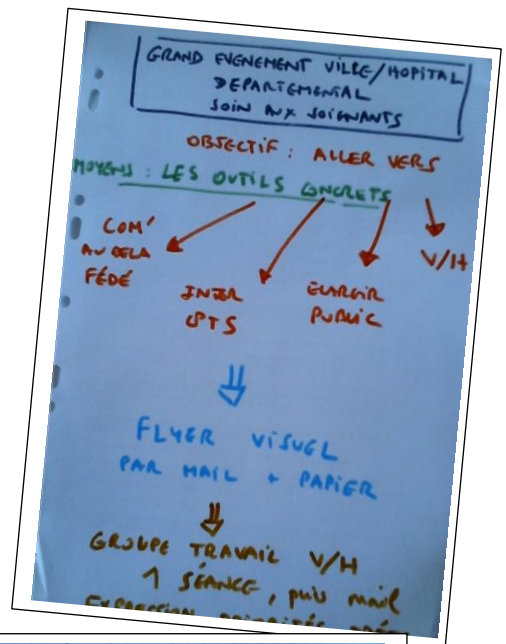 GRAND EVENEMENT VILLE/HOPITAL
DEPARTEMENTAL
SOIN AUX SOIGNANTS
OBJECTIF : ALLER VERS
MOYENS : LES OUTILS CONCRETS
COM'
AU DELA
FÉDÉ
INTER
CPTS
ELARGIR
PUBLIC
V/H
FLYER VISUEL
PAR MAIL + PAPIER
GROUPE TRAVAIL V/H
1 SÉANCE, puis mail
EXPRESSION